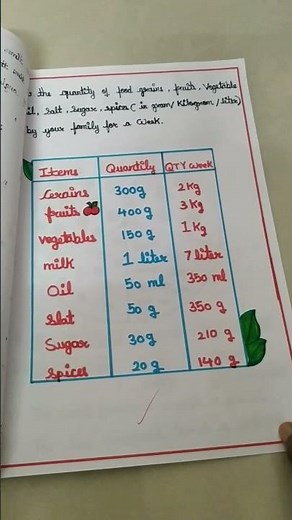 the quantity of food grains, fruits, Vegetable
il, Salt, Sugar, spices (in gram/Kilogram/liter)
by your family for a Week.
Items Quantily QTY week
Grains 300g 2Kg
fruits 400g 3Kg
vegetables 150g 1Kg
milk 1 liter 7 liter
Oil 50 ml 350 ml
Slat 50g 350g
Sugar 30g 210g
Spices 20g 140g